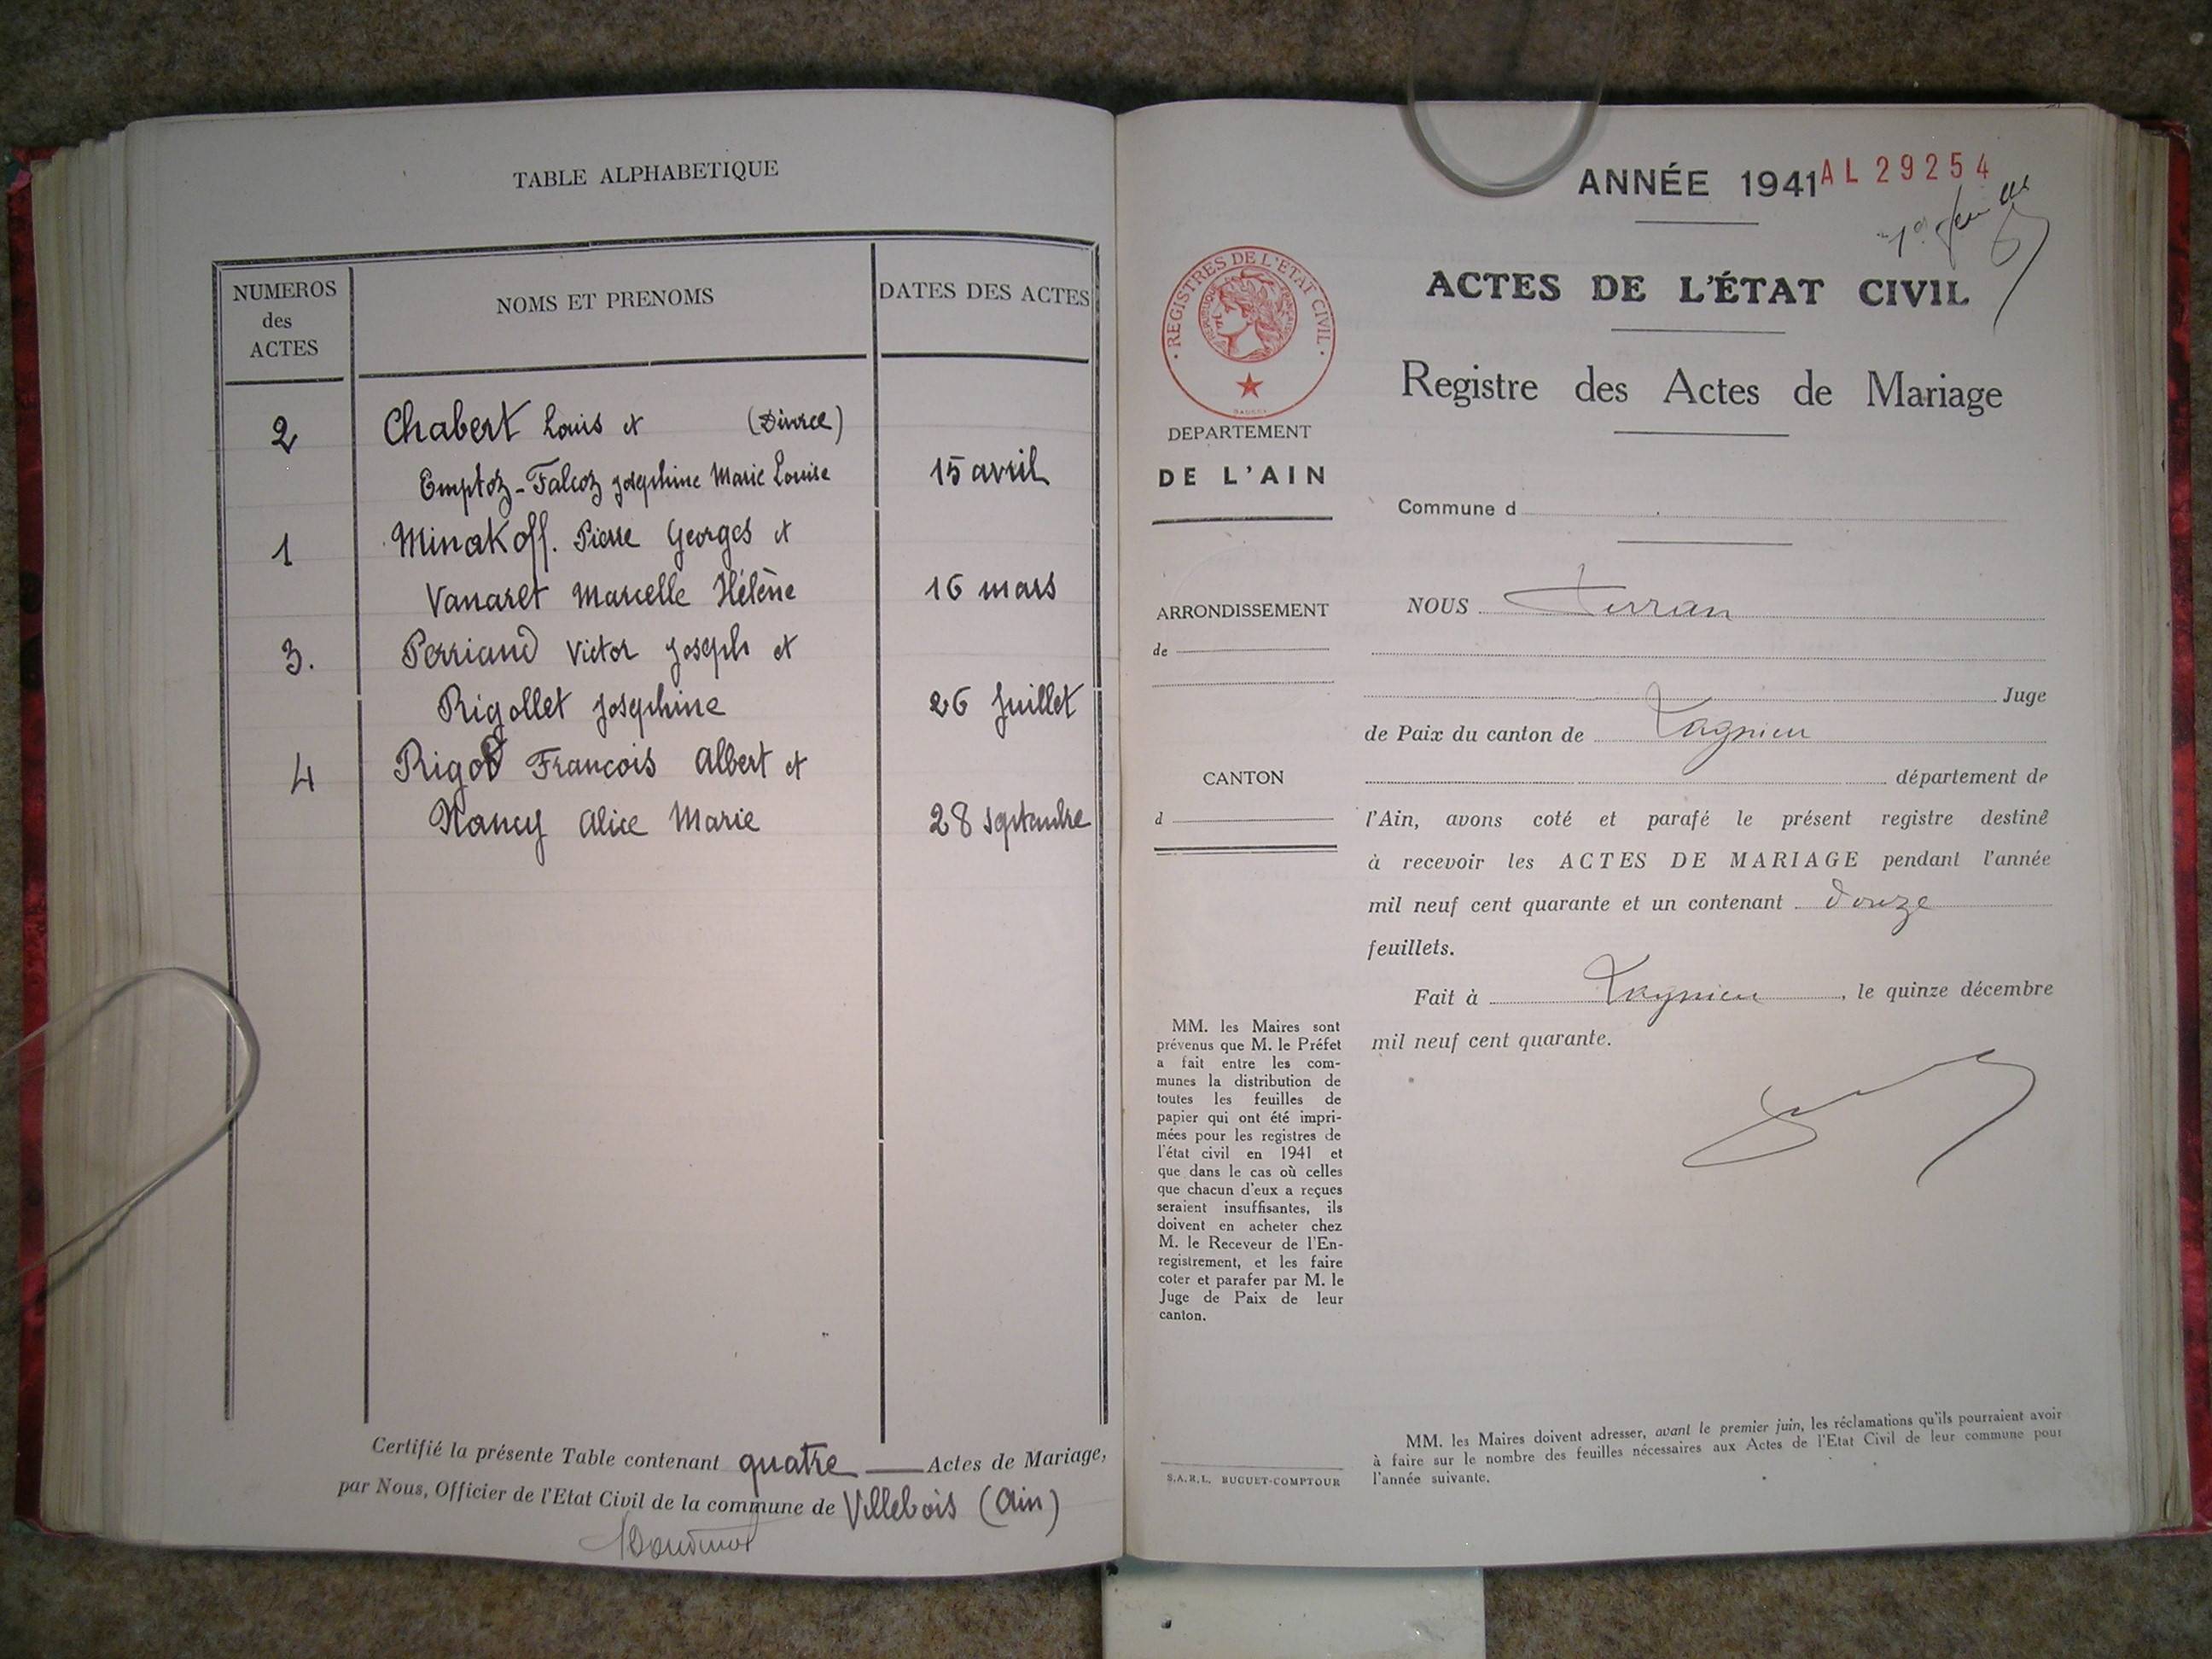 TABLE ALPHABETIQUE
NUMEROS
des
ACTES
NOMS ET PRENOMS
DATES DES ACTES
2
Chabert Louis et (Divorce)
Emptoz-Falcoz Joséphine Marie Louise
15 avril
1
Minakoff. Pierre Georges et
Vanaret Marcelle Hélène
16 mars
3.
Perriand Victor Joseph et
Rigollet Joséphine
26 Juillet
4
Rigod Francois Albert et
Nancy Alice Marie
28 septembre
Certifié la présente Table contenant quatre Actes de Mariage,
par Nous, Officier de l'Etat Civil de la commune de Villebois (Ain)
ANNÉE 1941
AL 29254
ACTES DE L'ÉTAT CIVIL
Registre des Actes de Mariage
REGISTRES DE L'ETAT CIVIL
REPUBLIQUE FRANÇAISE
DEPARTEMENT
DE L'AIN
ARRONDISSEMENT
de
CANTON
d
Commune d
NOUS
Juge
de Paix du canton de Lagnieu
département de
l'Ain, avons coté et parafé le présent registre destiné
à recevoir les ACTES DE MARIAGE pendant l'année
mil neuf cent quarante et un contenant douze
feuillets.
Fait à Lagnieu, le quinze décembre
mil neuf cent quarante.
MM. les Maires sont
prévenus que M. le Préfet
a fait entre les com-
munes la distribution de
toutes les feuilles de
papier qui ont été impri-
mées pour les registres de
l'état civil en 1941 et
que dans le cas où celles
que chacun d'eux a reçues
seraient insuffisantes, ils
doivent en acheter chez
M. le Receveur de l'En-
registrement, et les faire
coter et parafer par M. le
Juge de Paix de leur
canton.
S.A.R.L. BUGUET-COMPTOUR
MM. les Maires doivent adresser, avant le premier juin, les réclamations qu'ils pourraient avoir
à faire sur le nombre des feuilles nécessaires aux Actes de l'Etat Civil de leur commune pour
l'année suivante.